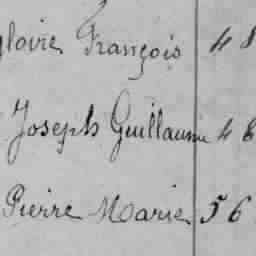 gloire François 48
Joseph Guillaume 48
Pierre Marie 56